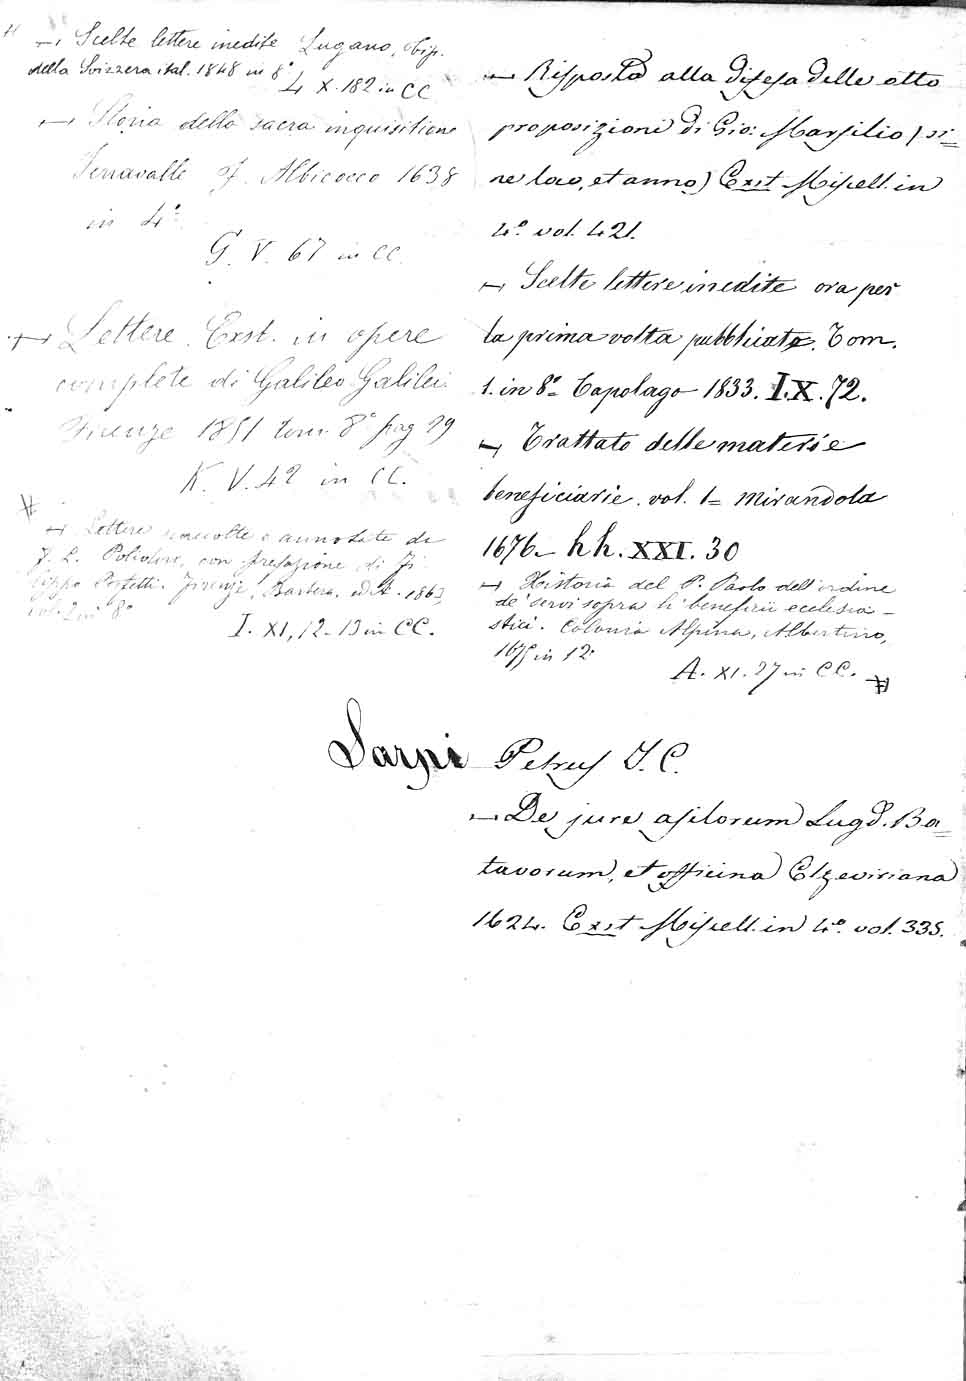 — Scelte lettere inedite Lugano, tip.
della Svizzera ital. 1848 in 8°
L X. 182 in CC
— Storia della sacra inquisitione
Serravalle f. Albicocco 1638
in 4°
G. V. 67 in CC.
— Lettere. Exst. in opere
complete di Galileo Galilei
Firenze 1851 tom. 8° pag 29
K. V. 42 in CC.
#
— Lettere raccolte e annotate da
F. L. Polidori, con prefazione di Fi
lippo Perfetti. Firenze, Barbera, edit. 1863,
vol. 2 in 8°
I. XI, 12-13 in CC.
— Risposta alla difesa delle otto
proposizioni di Gio: Marsilio (si=
ne loco, et anno) Exst Miscell. in
4.° vol. 421.
— Scelte lettere inedite ora per
la prima volta pubblicate. Tom.
1. in 8.° Capolago 1833. I.X.72.
— Trattato delle materie
beneficiarie. vol. 1= Mirandola
1676. hh. XXI. 30
— Historia del P. Paolo dell'ordine
de' servi sopra li beneficii ecclesia-
stici. Colonia Alpina, Albertino,
1675 in 12°
A. XI. 27 in CC. #
Sarpi Petrus J. C.
— De jure asilorum Lugd. Ba=
tavorum, et officina Elzeviriana
1624. Exst Miscell. in 4.° vol. 335.